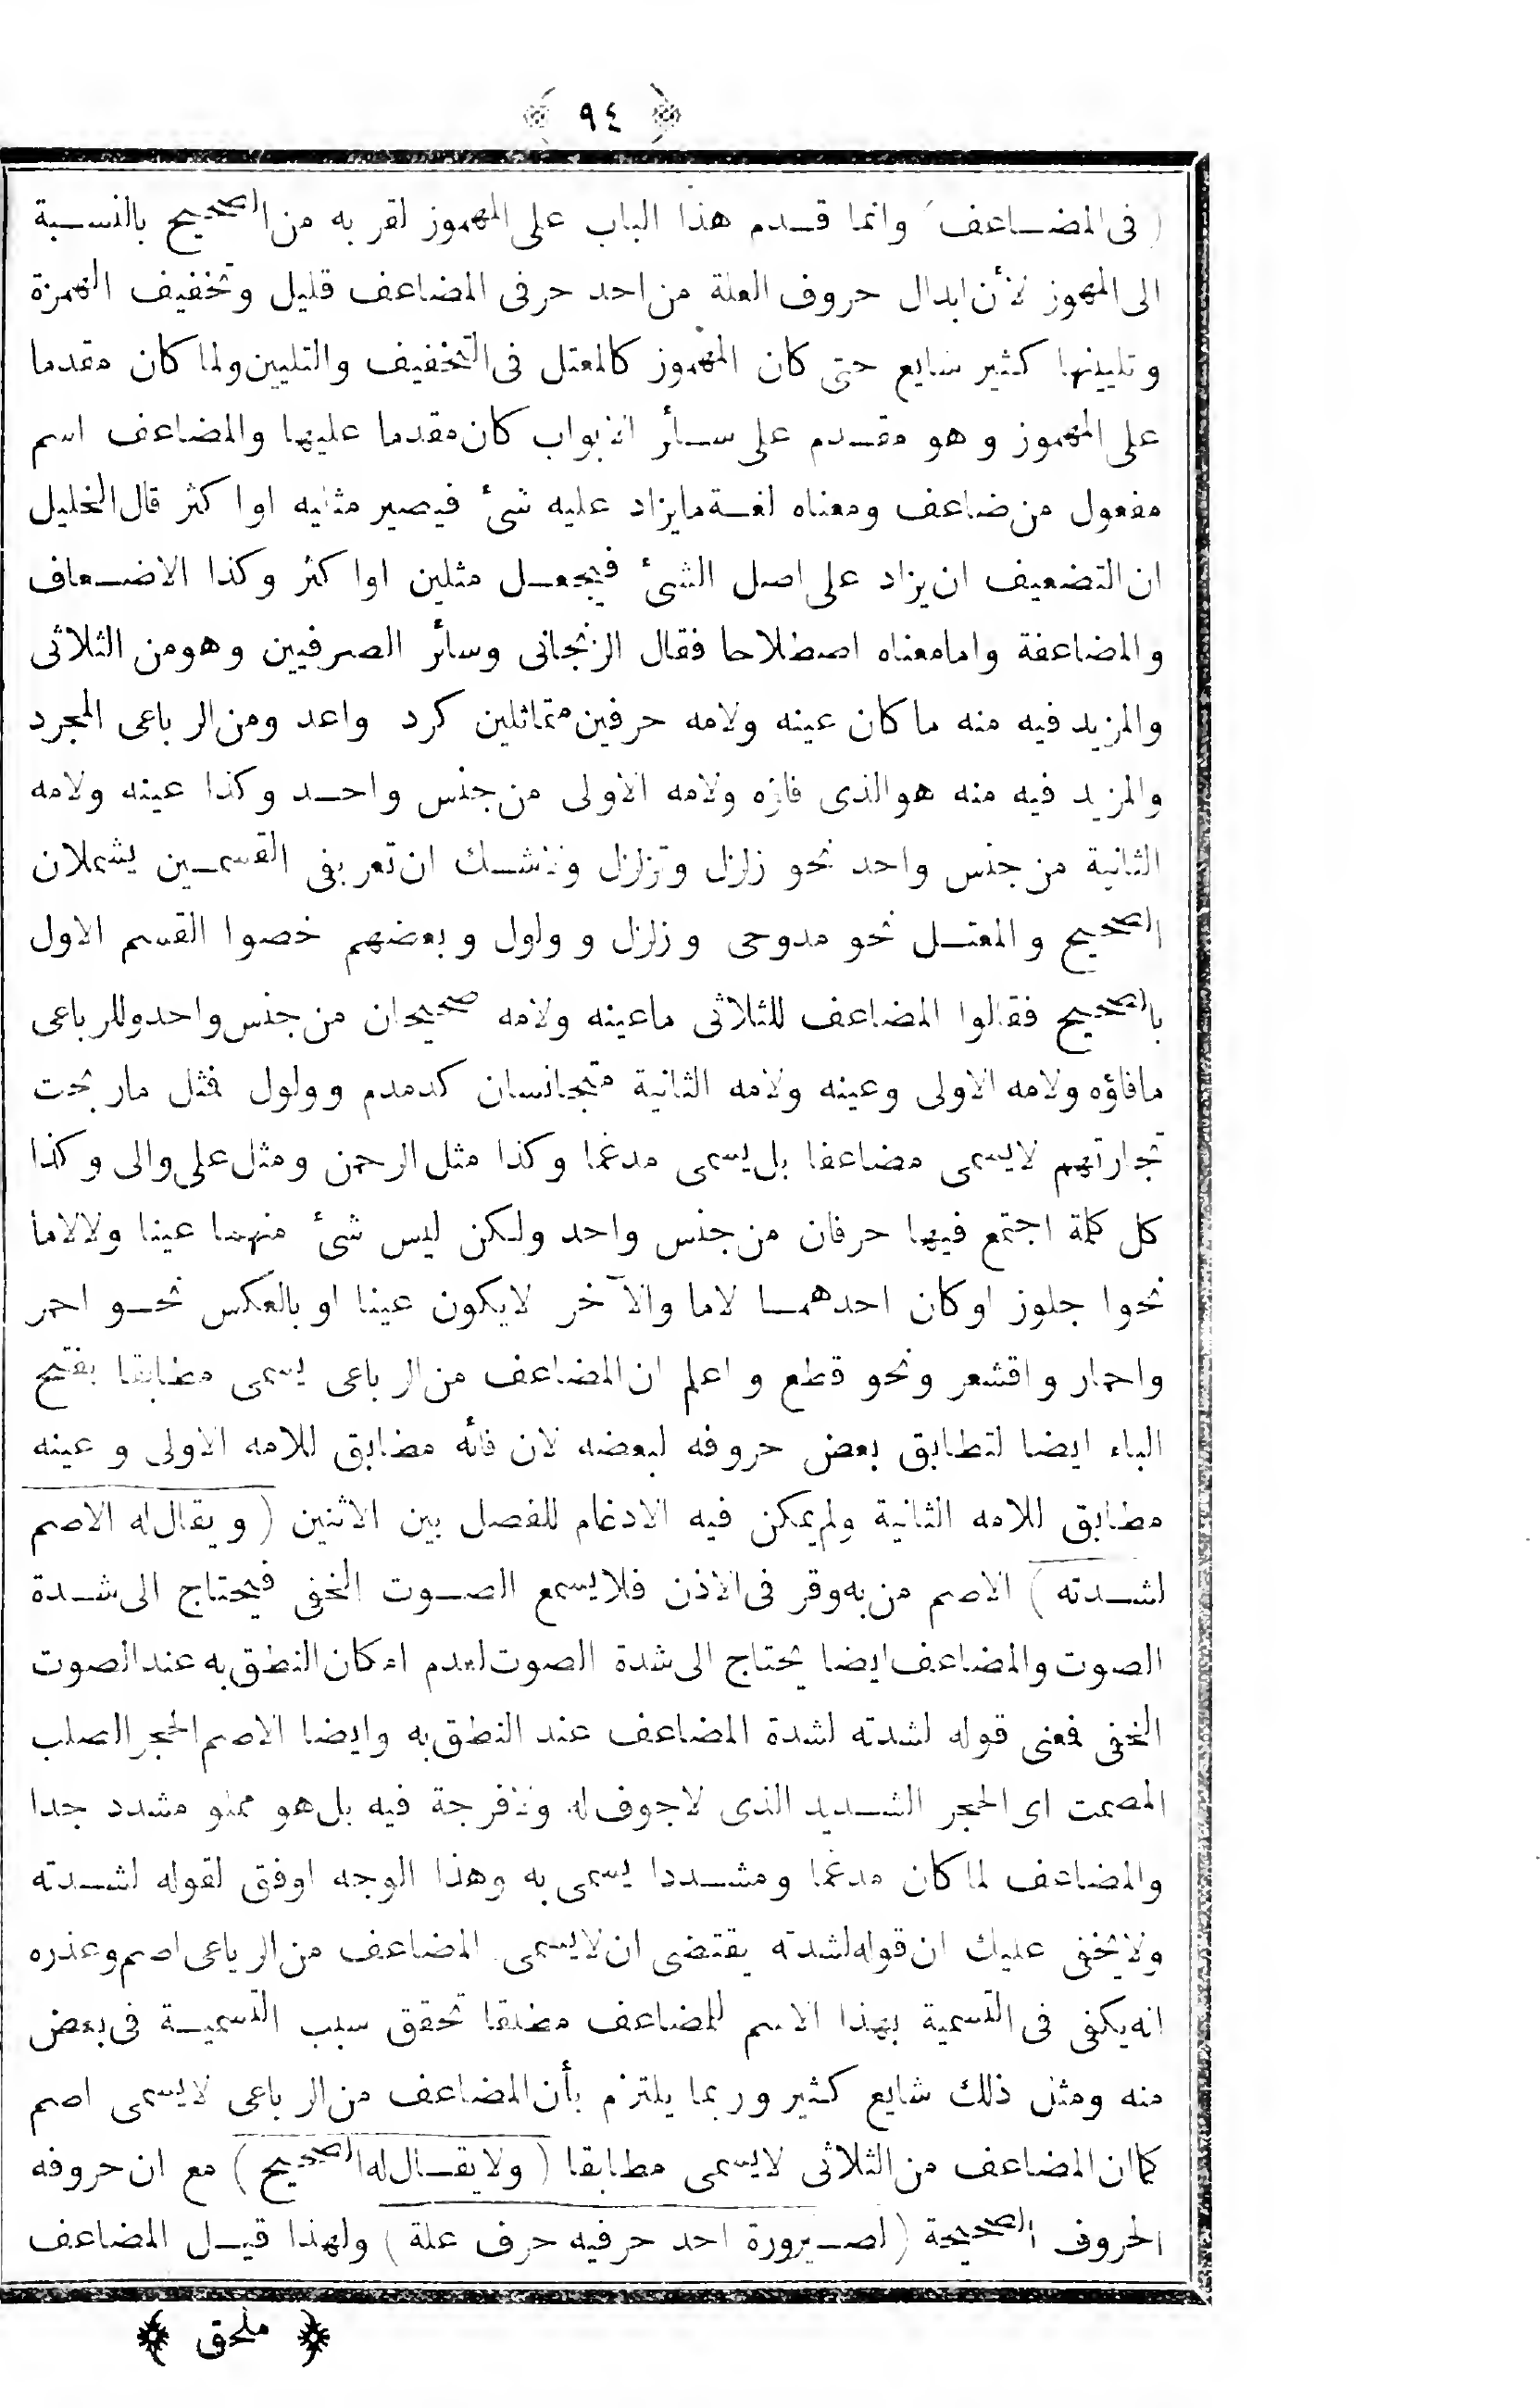 ﴿ ٩٤ ﴾
( فى المضاعف ) وانما قدم هذا الباب على المهموز لقربه من الصحيح بالنسبة
الى المهموز لأن ابدال حروف العلة من احد حرفى المضاعف قليل وتخفيف الهمزة
وتليينها كثير شايع حتى كان المهموز كالمعتل فى التخفيف والتليين ولما كان مقدما
على المهموز وهو مقدم على سائر الابواب كان مقدما عليها والمضاعف اسم
مفعول من ضاعف ومعناه لغة مايزاد عليه شئ فيصير مثليه او اكثر قال الخليل
ان التضعيف ان يزاد على اصل الشئ فيجعل مثلين او اكثر وكذا الاضعاف
والمضاعفة واما معناه اصطلاحا فقال الزنجانى وسائر الصرفيين وهو من الثلاثى
والمزيد فيه منه ما كان عينه ولامه حرفين متماثلين كرد واعد ومن الرباعى المجرد
والمزيد فيه منه هو الذى فاؤه ولامه الاولى من جنس واحد وكذا عينه ولامه
الثانية من جنس واحد نحو زلزل وتزلزل ولاشك ان تعريفى القسمين يشملان
الصحيح والمعتل نحو مدوحى وزلزل وولول وبعضهم خصوا القسم الاول
بالصحيح فقالوا المضاعف للثلاثى ماعينه ولامه صحيحان من جنس واحد وللرباعى
مافاؤه ولامه الاولى وعينه ولامه الثانية متجانسان كدمدم وولول فمثل ماربحت
تجارتهم لايسمى مضاعفا بل يسمى مدغما وكذا مثل الرحمن ومثل على والى وكذا
كل كلمة اجتمع فيها حرفان من جنس واحد ولكن ليس شئ منهما عينا ولالاما
نحوا جلوز اوكان احدهما لاما والآخر لايكون عينا او بالعكس نحو احمر
واحمار واقشعر ونحو قطع واعلم ان المضاعف من الرباعى يسمى مطابقا بفتح
الباء ايضا لتطابق بعض حروفه لبعضه لان فائه مطابق للامه الاولى وعينه
مطابق للامه الثانية ولم يمكن فيه الادغام للفصل بين الاثنين ( ويقال له الاصم
لشدته ) الاصم من به وقر فى الاذن فلايسمع الصوت الخفى فيحتاج الى شدة
الصوت والمضاعف ايضا يحتاج الى شدة الصوت لعدم امكان النطق به عند الصوت
الخفى فمعنى قوله لشدته لشدة المضاعف عند النطق به وايضا الاصم الحجر الصلب
المصمت اى الحجر الشديد الذى لاجوف له ولافرجة فيه بل هو مملو مشدد جدا
والمضاعف لما كان مدغما ومشددا يسمى به وهذا الوجه اوفق لقوله لشدته
ولايخفى عليك ان قوله لشدته يقتضى ان لايسمى المضاعف من الرباعى اصم وعذره
انه يكفى فى التسمية بهذا الاسم للمضاعف مطلقا تحقق سبب التسمية فى بعض
منه ومثل ذلك شايع كثير وربما يلتزم بأن المضاعف من الرباعى لايسمى اصم
كما ان المضاعف من الثلاثى لايسمى مطابقا ( ولايقال له الصحيح ) مع ان حروفه
الحروف الصحيحة ( لصيرورة احد حرفيه حرف علة ) ولهذا قيل المضاعف
﴿ ملحق ﴾